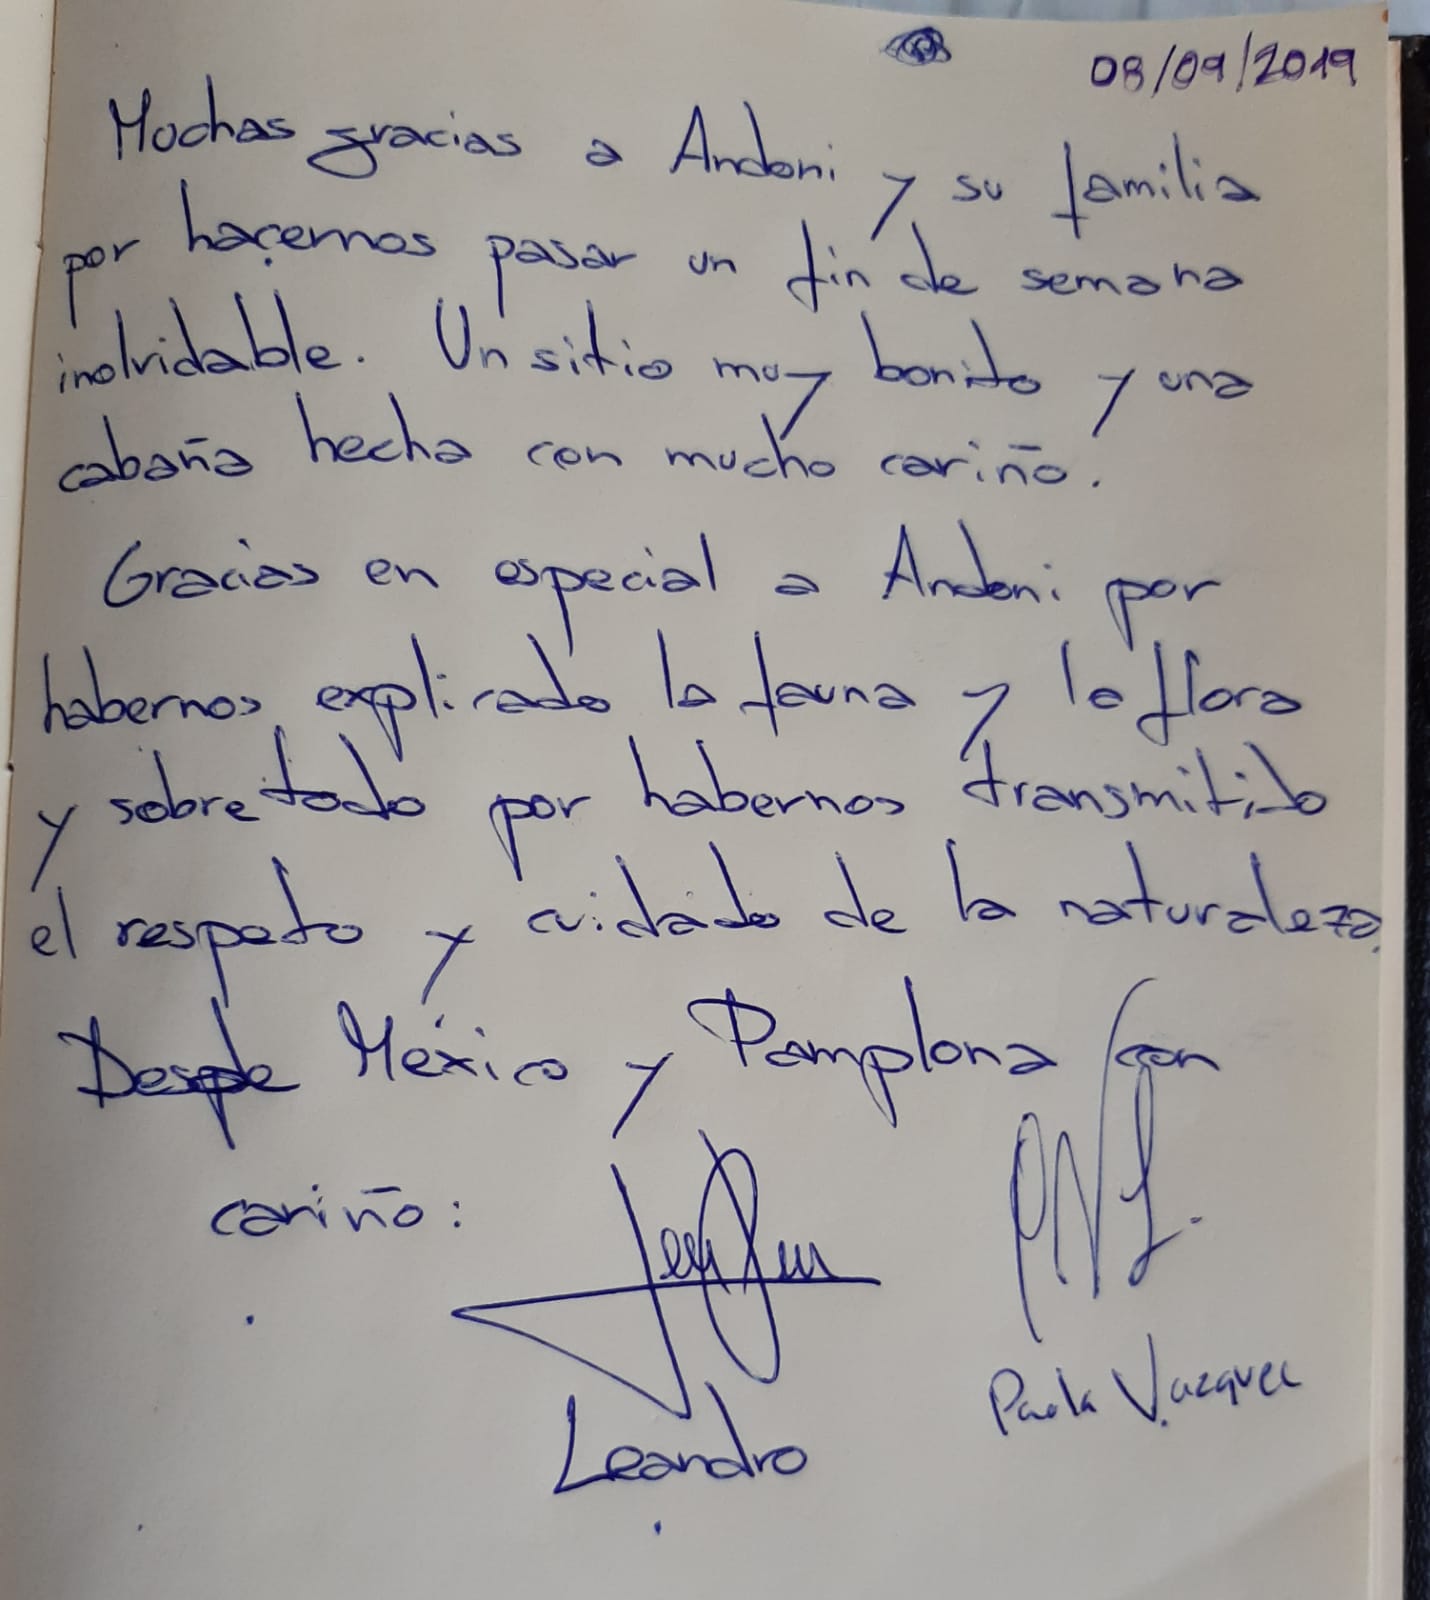 08/09/2019
Muchas gracias a Andoni y su familia
por hacernos pasar un fin de semana
inolvidable. Un sitio muy bonito y una
cabaña hecha con mucho cariño.
Gracias en especial a Andoni por
habernos explicado la fauna y la flora
y sobre todo por habernos transmitido
el respeto y cuidado de la naturaleza.
Desde México y Pamplona con
cariño:
Leandro
Paola Vazquez